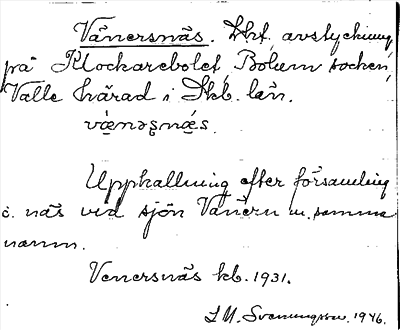 Vänersnäs. Lht, avstyckning
på Klockarebolet, Bolum socken,
Valle härad i Skb. län.
vä̀nəʂnä́s.
Uppkallning efter församling
o. näs vid sjön Vänern m. samma
namn.
Venersnäs kb. 1931.
S.M. Svenungsson. 1946.